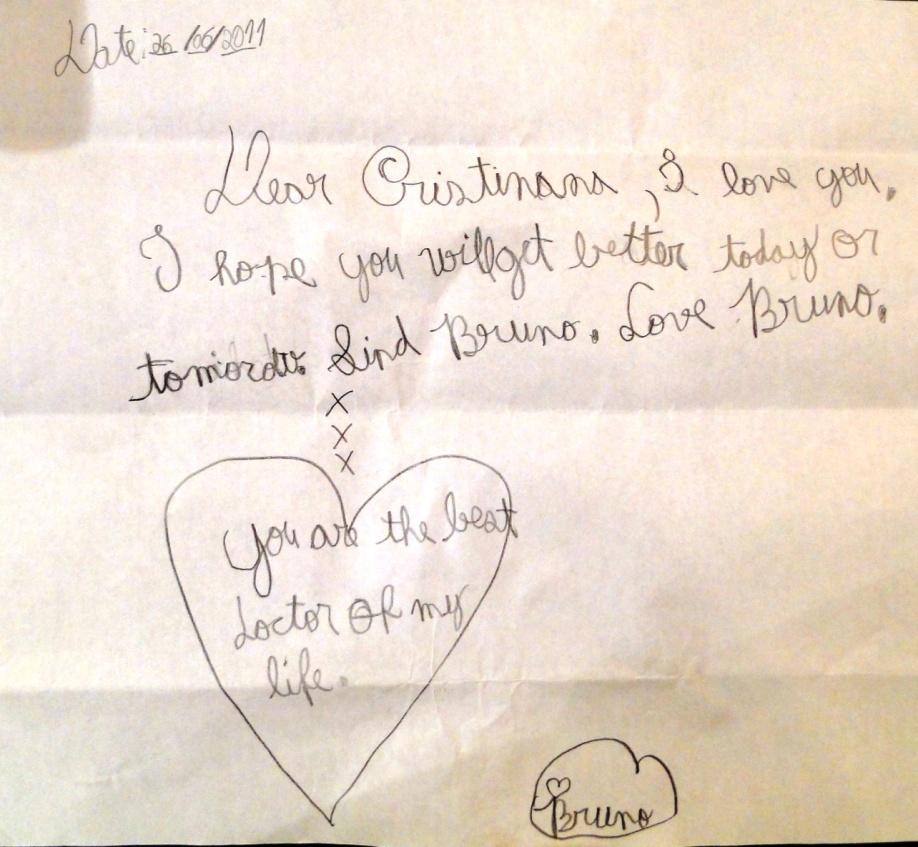 Date: 26/06/2011
Dear Cristinana, I love you.
I hope you will get better today or
Sind Bruno. Love Bruno.
x
x
x
You are the best
doctor of my
life.
Bruno